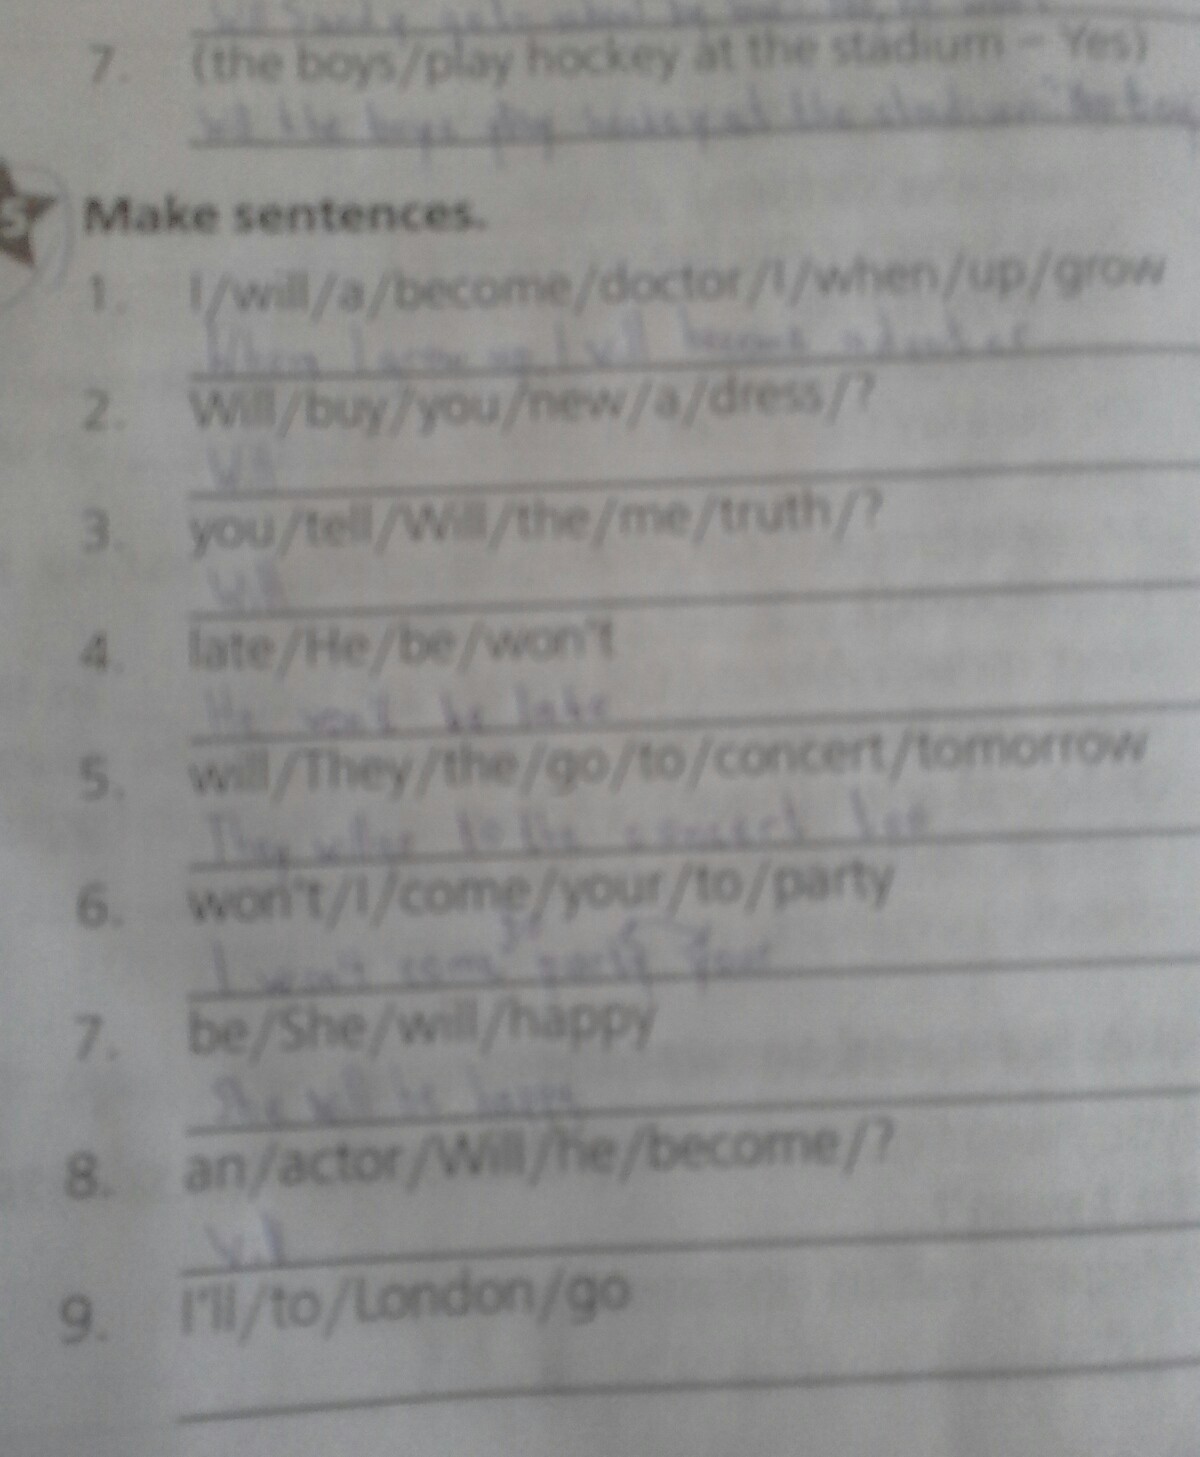 7. (the boys/play hockey at the stadium – Yes)
Will the boys play hockey at the stadium
5 Make sentences.
1. I/will/a/become/doctor/I/when/up/grow
When I grow up I will become a
2. Will/buy/you/new/a/dress/?
Will
3. you/tell/Will/the/me/truth/?
Will
4. late/He/be/won't
He won't be late
5. will/They/the/go/to/concert/tomorrow
They to the concert
6. won't/I/come/your/to/party
I won't come party your
7. be/She/will/happy
She will be happy
8. an/actor/Will/he/become/?
Will
9. I'll/to/London/go